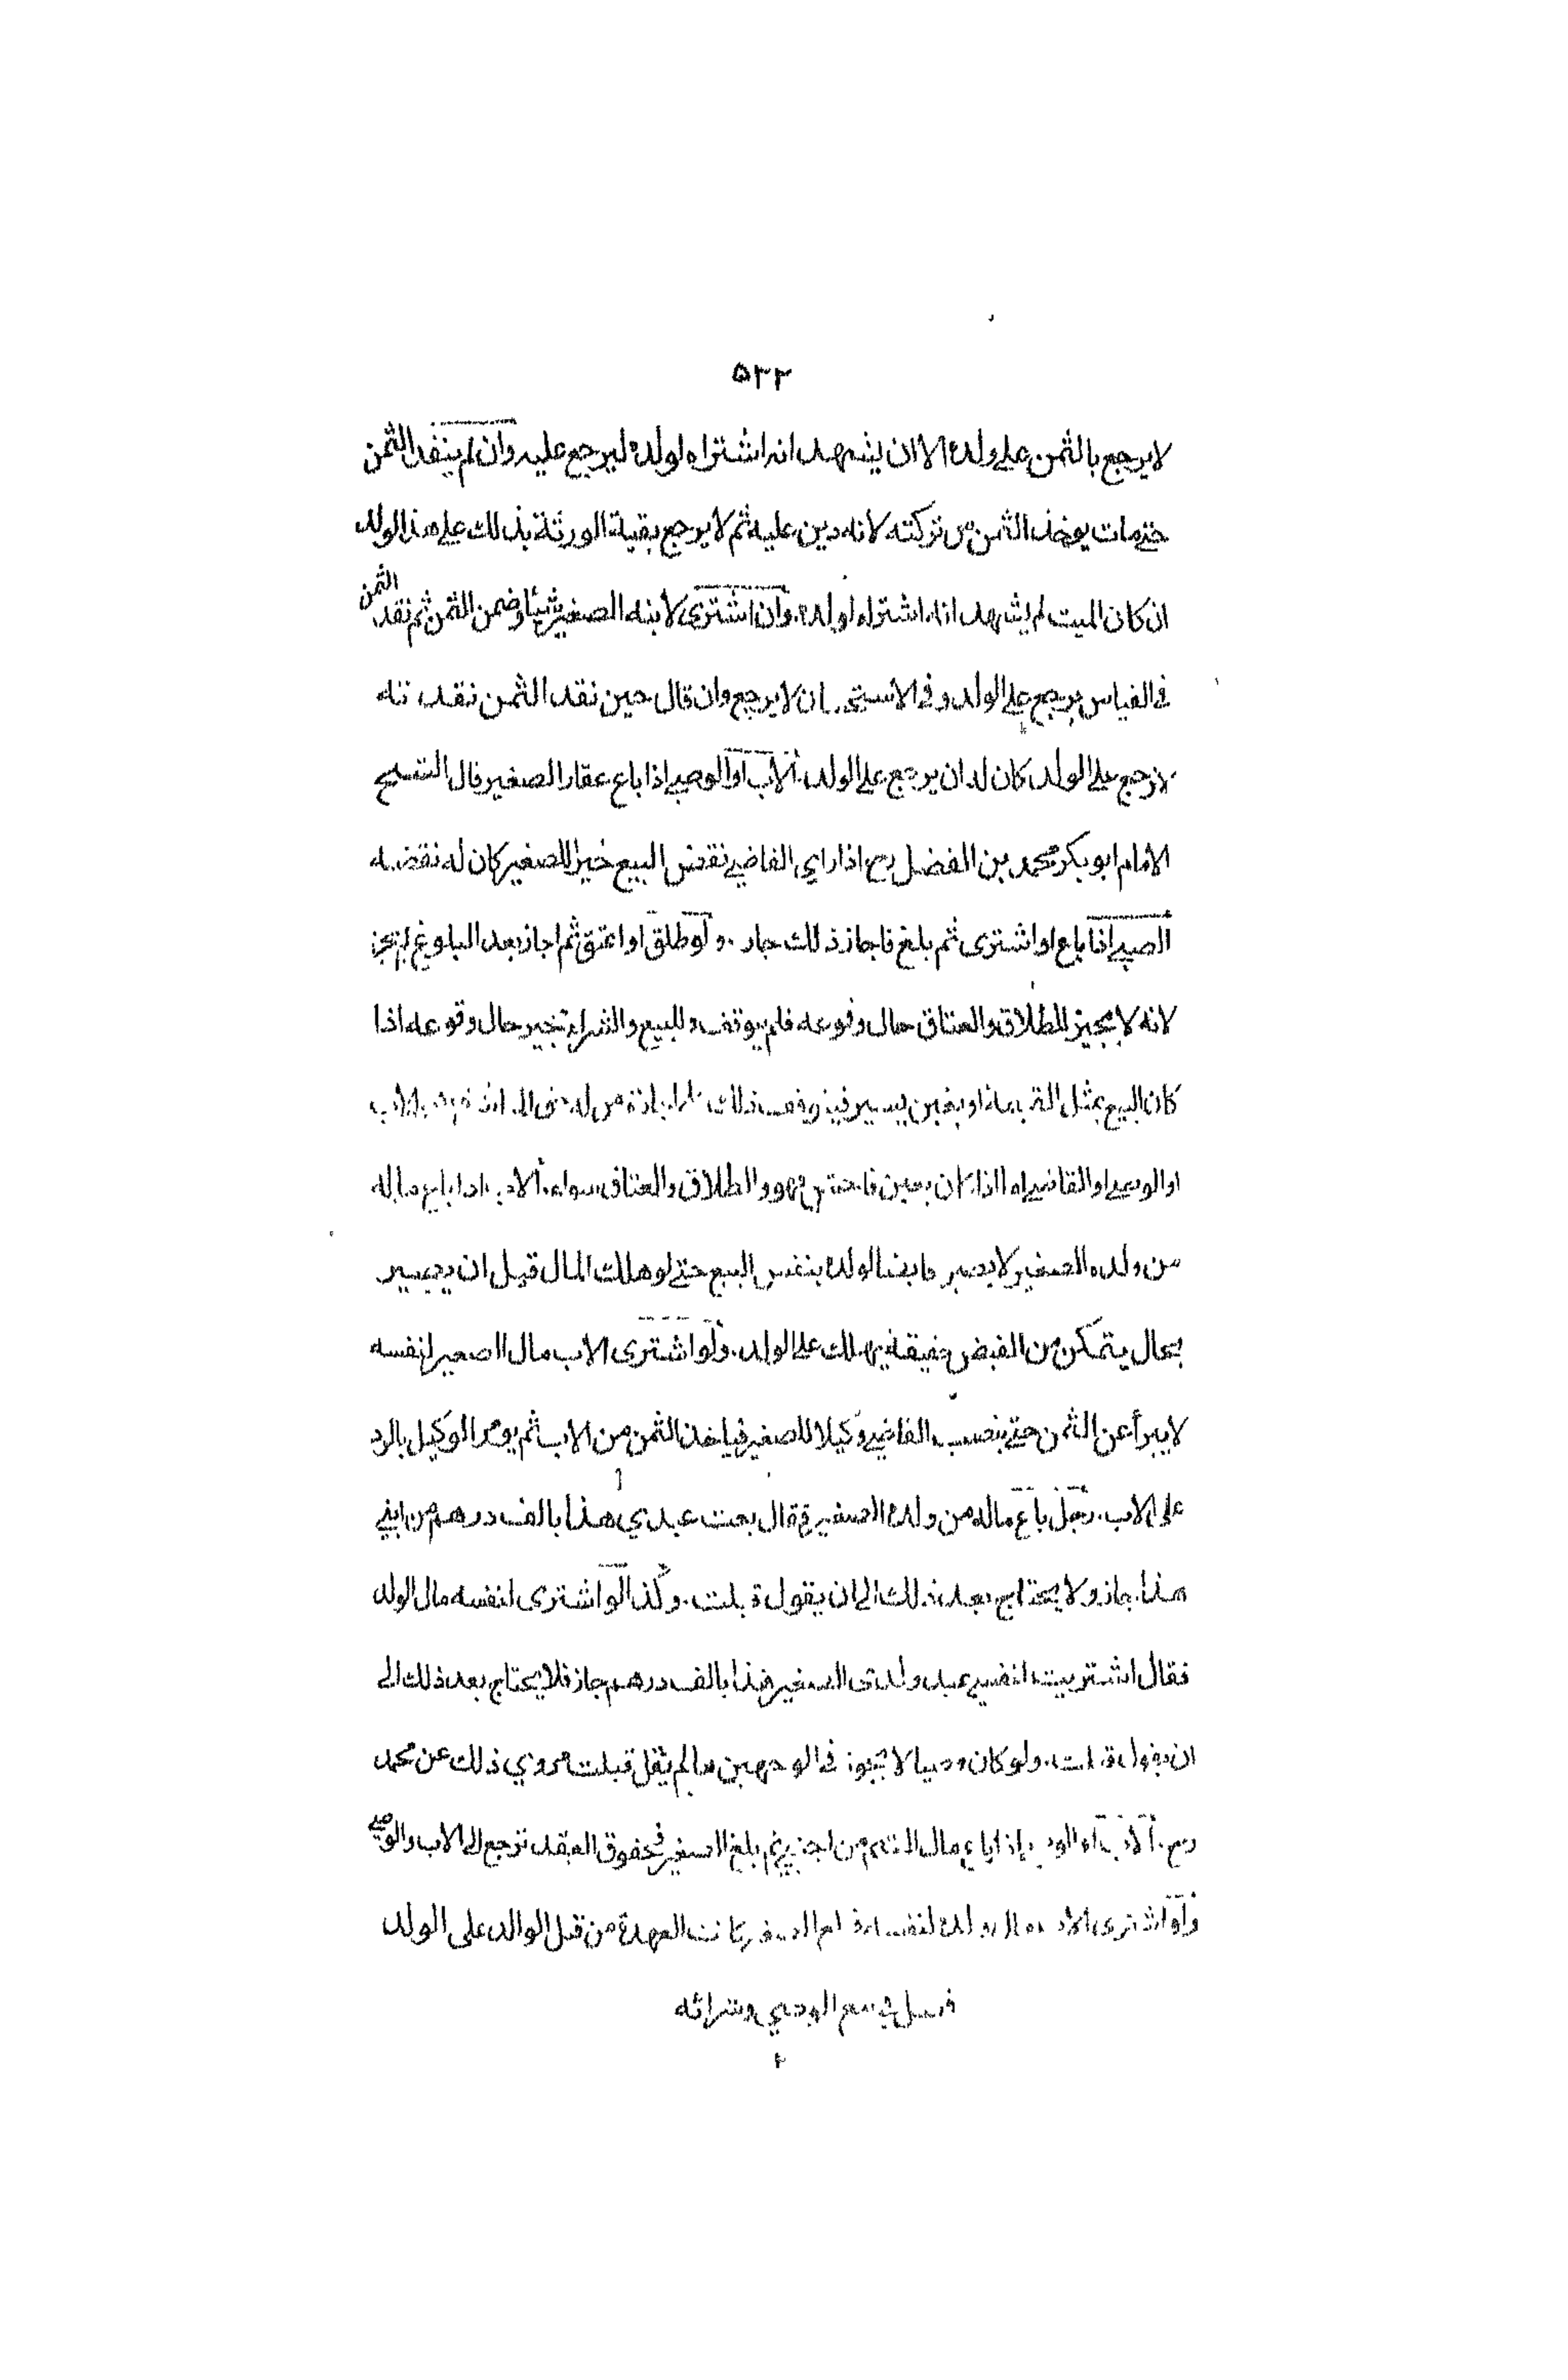 ۵۲۲
لا يرجع بالثمن على ولده الا ان يشهد انه اشتراه لولده ليرجع عليه وان لم ينقد الثمن
حتى مات يوخذ الثمن من تركته لانه دين عليه ثم لا يرجع بقية الورثة بذلك على هذا الولد
ان كان الميت لم يشهد انه اشتراه لولده. وان اشترى لابنه الصغير شيئا وضمن الثمن ثم نقد الثمن
في القياس يرجع على الولد وفي الاستحسان لا يرجع وان قال حين نقد الثمن نقدته
لارجع على الولد كان له ان يرجع على الولد. الاب او الوصي اذا باع عقار الصغير قال الشيخ
الامام ابو بكر محمد بن الفضل رح اذا راي القاضي نقض البيع خيرا للصغير كان له نقضه
الصبي اذا باع او اشترى ثم بلغ فاجاز ذلك جاز. ولو طلق او اعتق ثم اجاز بعد البلوغ لم يجز
لانه لا مجيز للطلاق والعتاق حال وقوعه فلم يتوقف وللبيع والشراء مجيز حال وقوعه اذا
كان البيع بمثل القيمة او بغبن يسير فيتوقف ذلك
او الوصي او القاضي اما اذا كان بغبن فاحش فهو والطلاق والعتاق سواء. الاب اذا باع ماله
من ولده الصغير لا يصير قابضا لولده بنفس البيع حتى لو هلك المال قبل ان يصير
بحال يتمكن من القبض حقيقة يهلك على الوالد. ولو اشترى الاب مال الصغير لنفسه
لا يبرأ عن الثمن حتى ينصب القاضي وكيلا للصغير فياخذ الثمن من الاب ثم يومر الوكيل بالرد
على الاب. رجل باع ماله من ولده الصغير فقال بعت عبدي هذا بالف درهم من ابني
هذا جاز ولا يحتاج بعد ذلك الى ان يقول قبلت. وكذا لو اشترى لنفسه مال الولد
فقال اشتريت لنفسي عبد ولدى الصغير هذا بالف درهم جاز فلا يحتاج بعد ذلك الى
ان يقول قبلت. ولو كان وصيا لا يجوز في الوجهين ما لم يقل قبلت مروي ذلك عن محمد
رح. الاب او الوصي اذا باع مال اليتيم من اجنبي ثم بلغ الصغير فحقوق العقد ترجع الى الاب والوصي
ولو اشترى الاب مال ولده لنفسه كانت العهدة من قبل الوالد على الولد
فصل في بيع الوصي وشرائه